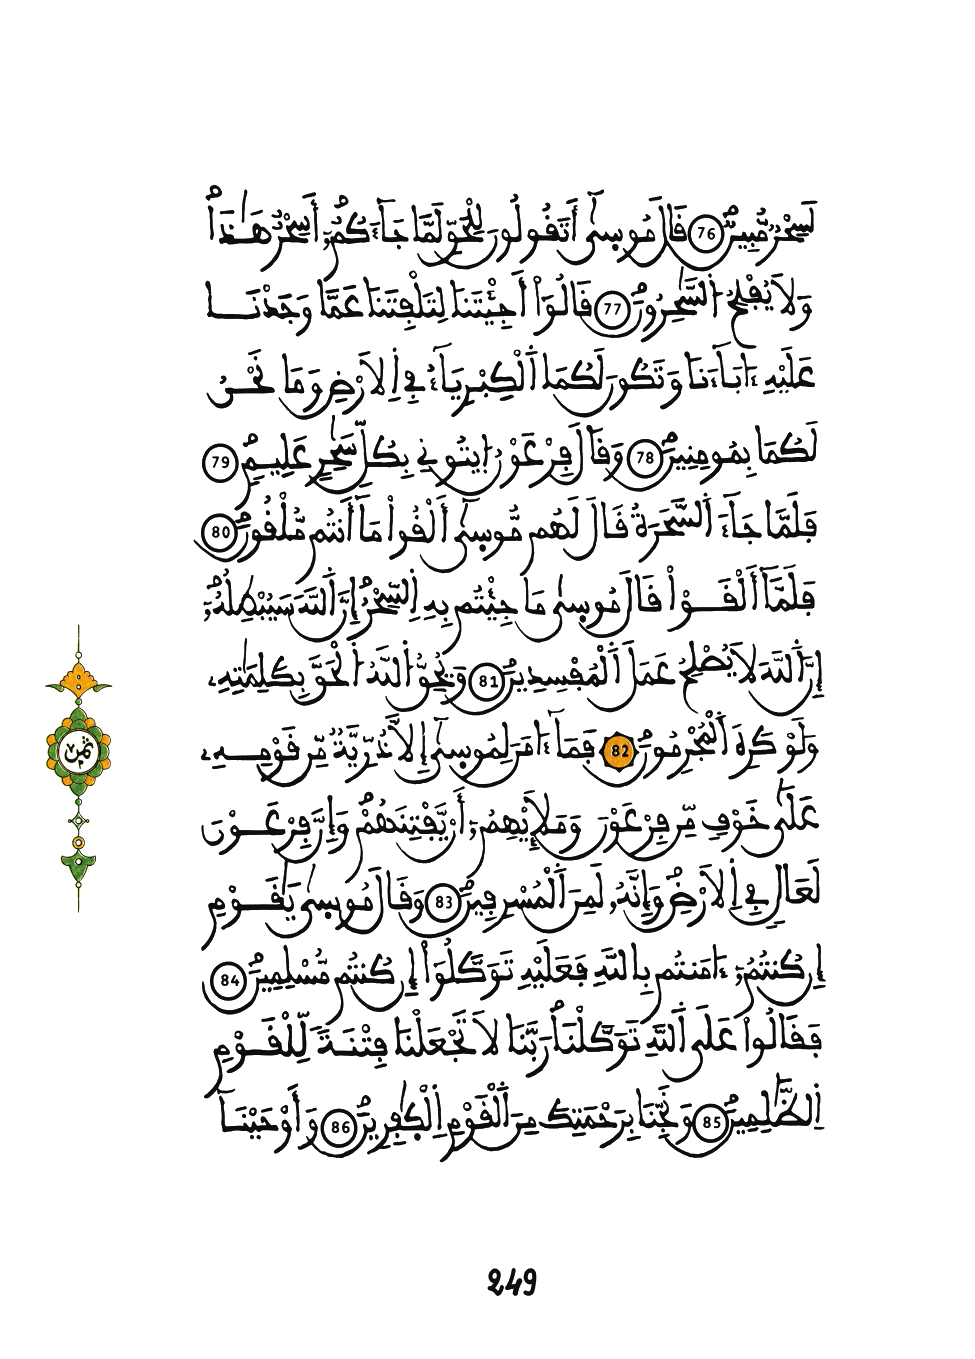 لَسِحْرٌ مُّبِينٌ 76 قَالَ مُوسِىٰٓ أَتَقُولُونَ لِلْحَقِّ لَمَّا جَآءَكُمُۥٓ أَسِحْرٌ هَٰذَاۖ
وَلَا يُفْلِحُ اُ۬لسَّٰحِرُونَ 77 قَالُوٓاْ أَجِئْتَنَا لِتَلْفِتَنَا عَمَّا وَجَدْنَا
عَلَيْهِ ءَابَآءَنَا وَتَكُونَ لَكُمَا اَ۬لْكِبْرِيَآءُ فِے اِ۬لَارْضِ وَمَا نَحْنُ
لَكُمَا بِمُومِنِينَۖ 78 وَقَالَ فِرْعَوْنُ اُ۪يتُونِے بِكُلِّ سَٰحِرٍ عَلِيمٖۖ 79
فَلَمَّا جَآءَ اَ۬لسَّحَرَةُ قَالَ لَهُم مُّوسِىٰٓ أَلْقُواْ مَآ أَنتُم مُّلْقُونَۖ 80
فَلَمَّآ أَلْقَوْاْ قَالَ مُوسِىٰ مَا جِئْتُم بِهِ اِ۬لسِّحْرُۖ إِنَّ اَ۬للَّهَ سَيُبْطِلُهُۥٓۖ
إِنَّ اَ۬للَّهَ لَا يُصْلِحُ عَمَلَ اَ۬لْمُفْسِدِينَۖ 81 وَيُحِقُّ اُ۬للَّهُ اُ۬لْحَقَّ بِكَلِمَٰتِهِۦ
وَلَوْ كَرِهَ اَ۬لْمُجْرِمُونَۖ 82 فَمَآ ءَامَنَ لِمُوسِىٰٓ إِلَّا ذُرِّيَّةٞ مِّن قَوْمِهِۦ
عَلَىٰ خَوْفٖ مِّن فِرْعَوْنَ وَمَلَإِيْهِمُۥٓ أَنْ يَّفْتِنَهُمْۖ وَإِنَّ فِرْعَوْنَ
لَعَالٖ فِے اِ۬لَارْضِۖ وَإِنَّهُۥ لَمِنَ اَ۬لْمُسْرِفِينَۖ 83 وَقَالَ مُوسِىٰ يَٰقَوْمِ
إِن كُنتُمُۥٓ ءَامَنتُم بِاللَّهِ فَعَلَيْهِ تَوَكَّلُوٓاْ إِن كُنتُم مُّسْلِمِينَۖ 84
فَقَالُواْ عَلَى اَ۬للَّهِ تَوَكَّلْنَاۖ رَبَّنَا لَا تَجْعَلْنَا فِتْنَةٗ لِّلْقَوْمِ
اِ۬لظَّٰلِمِينَۖ 85 وَنَجِّنَا بِرَحْمَتِكَ مِنَ اَ۬لْقَوْمِ اِ۬لْكٰ۪فِرِينَۖ 86 وَأَوْحَيْنَآ
ثمن
249